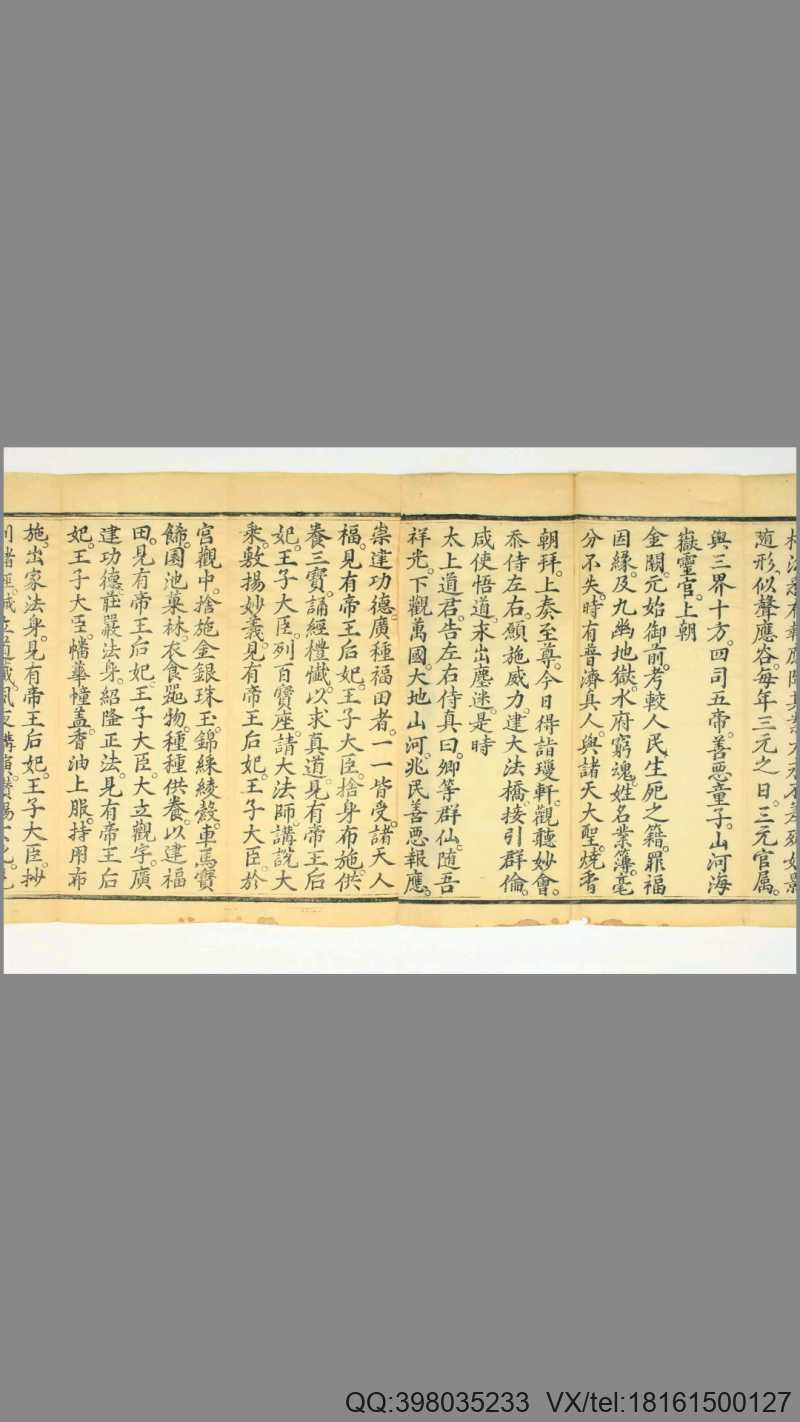 随形。似聲應谷。每年三元之日。三元官属。
與三界十方。四司五帝。善惡童子。山河海
嶽靈官。上朝
金闕。元始御前。考較人民生死之籍。罪福
因緣。及九幽地獄。水府窮魂。姓名業簿。毫
分不失。時有普濟真人。與諸天大聖。燒香
朝拜。上奏至尊。今日得詣瓊軒。觀聽妙會。
忝侍左右。願施威力。建大法橋。接引群倫。
咸使悟道。求出塵迷。是時
太上道君。告左右侍真曰。卿等群仙。随吾
祥光。下觀萬國。大地山河。兆民善惡報應。
崇建功德。廣種福田者。一一皆受。諸天人
福。見有帝王后妃。王子大臣。捨身布施。供
養三寶。誦經禮懺。以求真道。見有帝王后
妃。王子大臣。列百寶座。請大法師。講説大
乘。敷揚妙義。見有帝王后妃。王子大臣。於
宮觀中。捨施金銀珠玉。錦綵綾縠。車馬寶
飾。園池菓林。衣食器物。種種供養。以建福
田。見有帝王后妃。王子大臣。大立觀宇。廣
建功德。莊嚴法身。紹隆正法。見有帝王后
妃。王子大臣。幡華幢蓋。香油上服。持用布
施。出家法身。見有帝王后妃。王子大臣。抄
QQ:398035233 VX/tel:18161500127